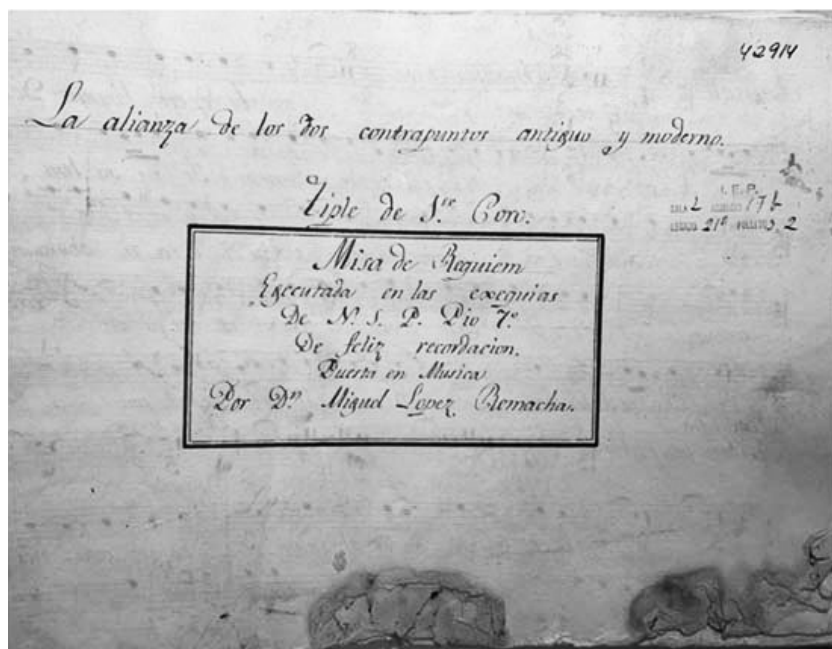 42914
La alianza de los dos contrapuntos antiguo y moderno.
I. E. P.
Tiple de 1.re Coro.
SALA L 17
ESTADO 21º 2
Misa de Requiem
Egecutada en las exequias
De N. S. P. Pio 7.º
De feliz recordacion.
Puesta en Musica
Por D.n Miguel Lopez Remacha.